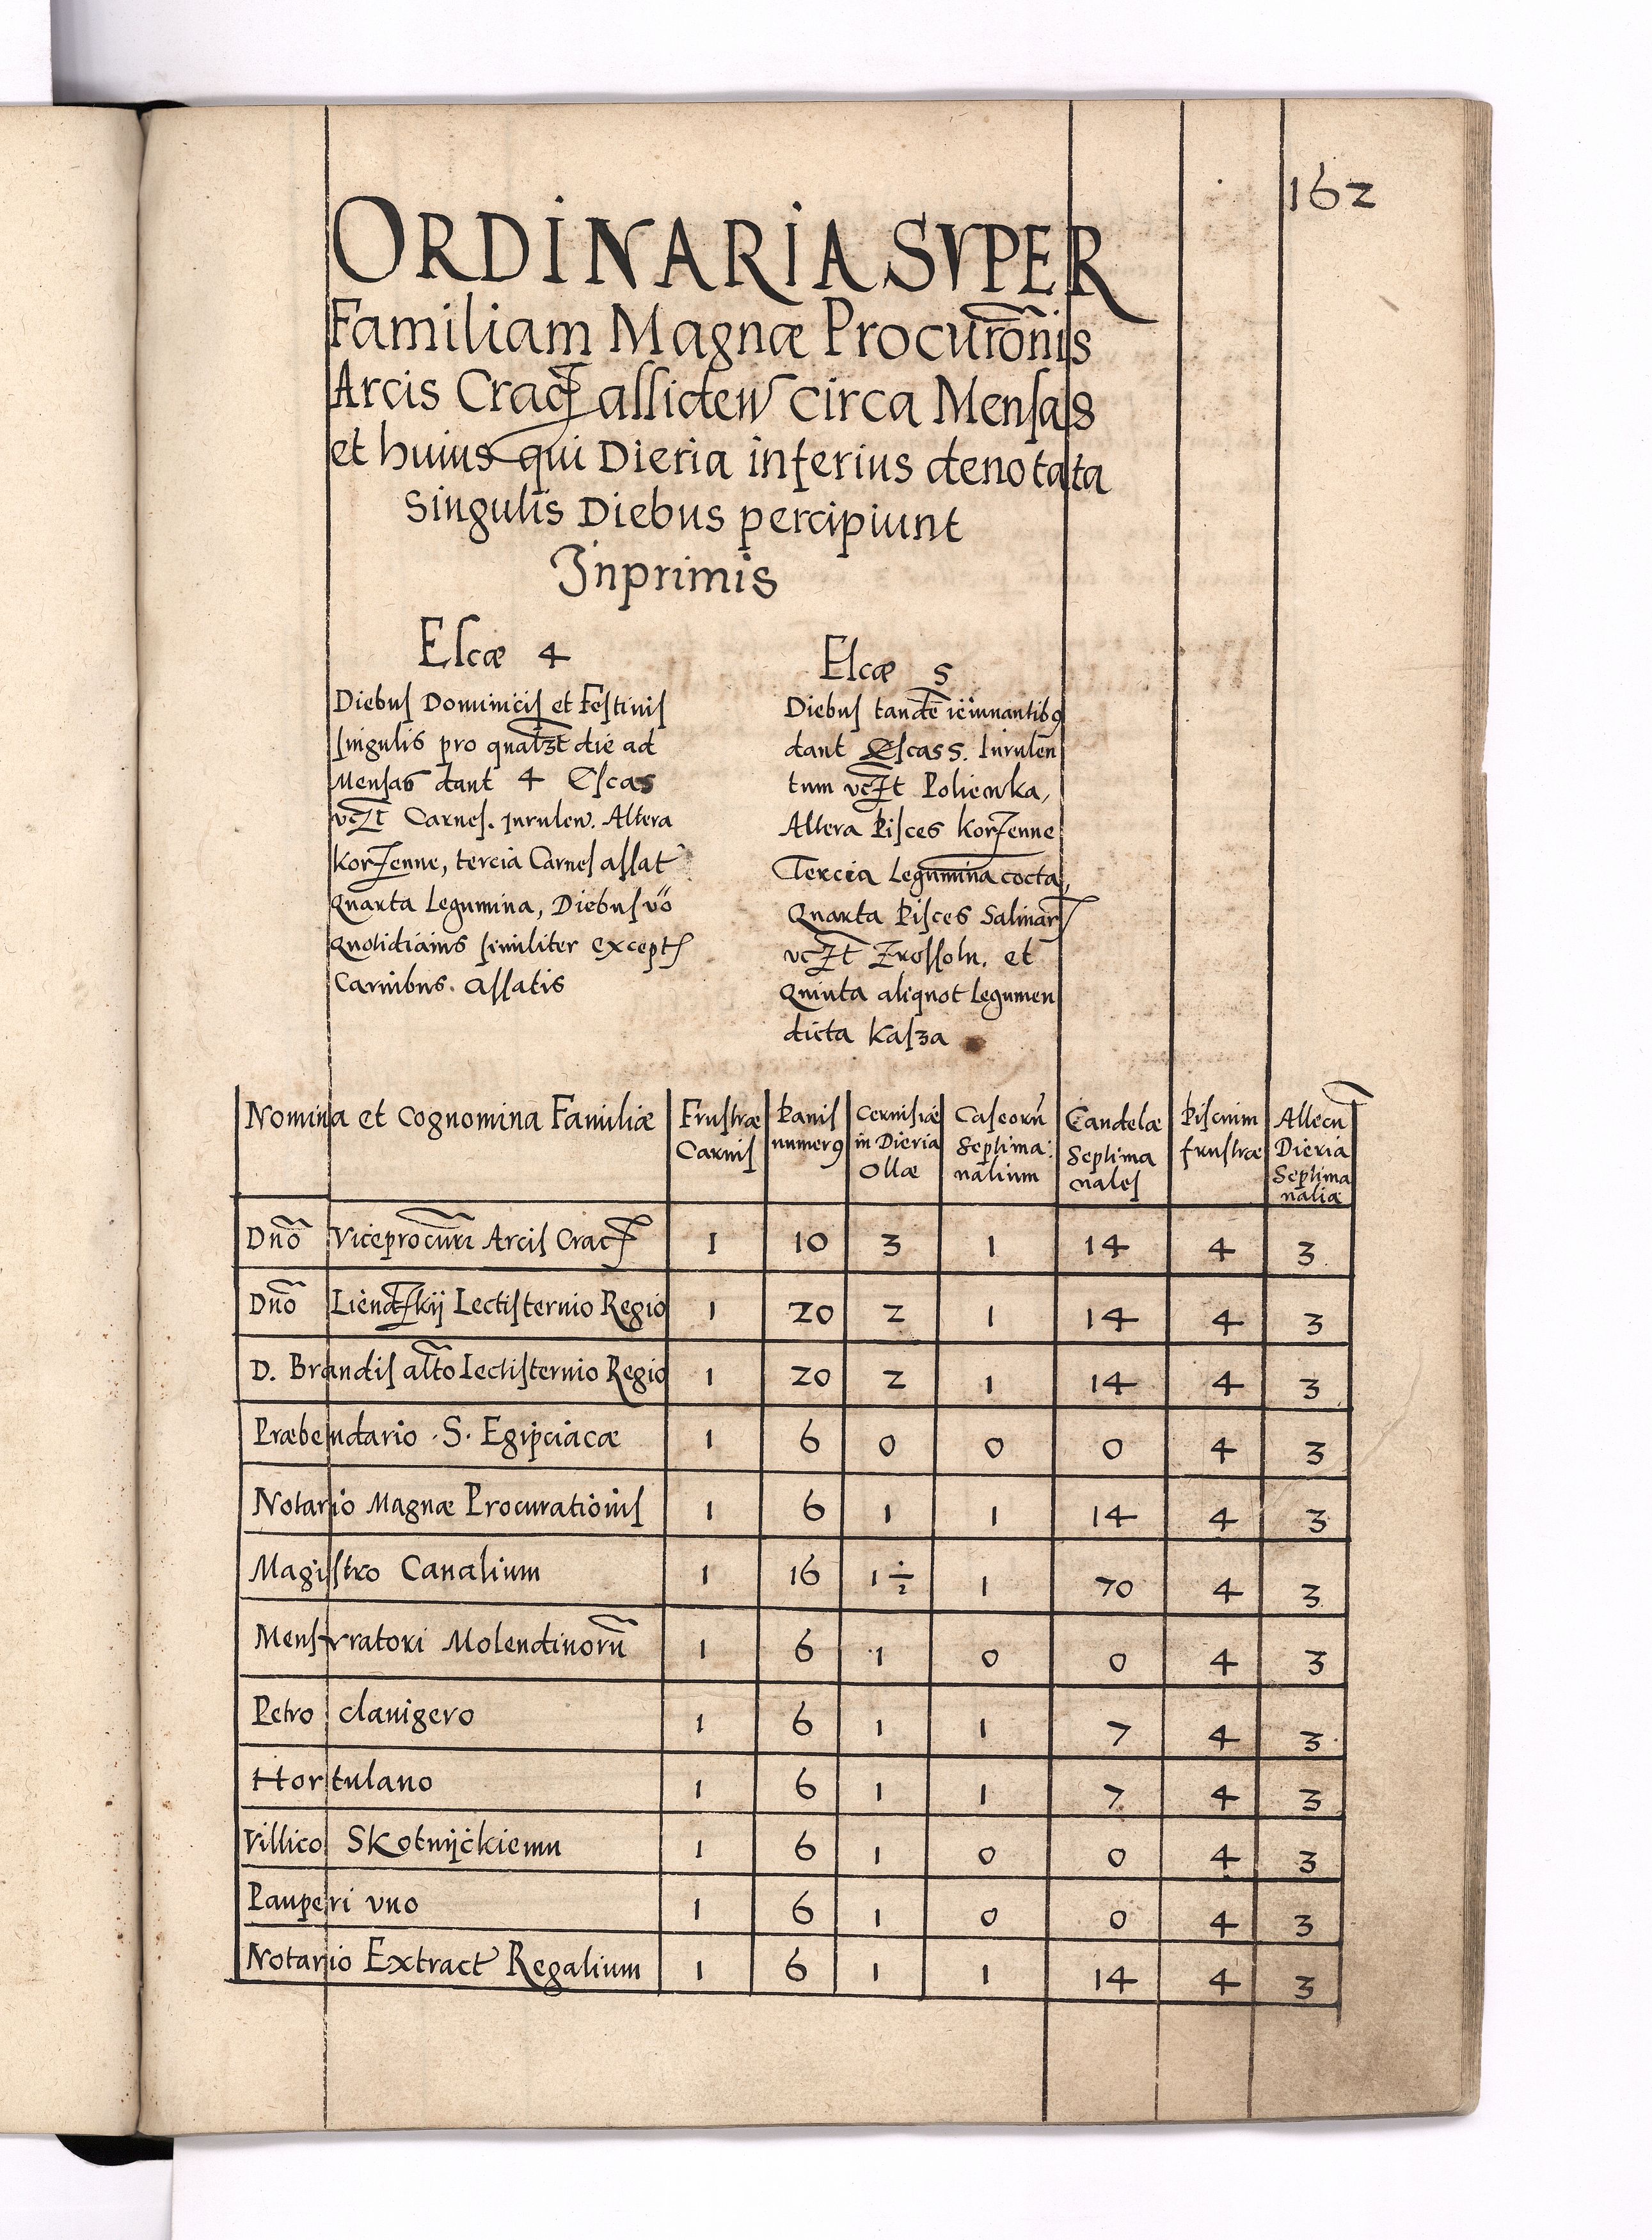 162
ORDINARIA SVPER
Familiam Magnæ Procurõnis
Arcis Crac assiden circa Mensas
et huius qui Dieria inferius denotata
singulis Diebus percipiunt
Inprimis
Escæ 4
Diebus Dominicis et Festiuis
singulis pro die ad
Mensas dant 4 Escas
vczt Carnes. Inrulen. Altera
korzenne, tercia Carnes assat
Quarta Legumina, Diebus vö
quotidianis similiter except
Carnibus. assatis
Escæ 5
Diebus tandẽ ieiunantibꝯ
dant Escas 5. Inrulen
tum vczt Poliewka,
Altera Pisces korzenne
Tercia Legumina cocta,
Quarta Pisces Salinar
vczt Zrossolu. et
Quinta aliquot Legumen
dicta kasza
Nomina et cognomina Familiæ | Frustræ Carnis | Panis numerꝯ | Ceruisiæ in Dieria ollæ | Caseorũ Septima: nalium | Candelæ Septima nales | Piscium frustræ | Allecu Dieria Septima naliæ
Dnõ Viceprocuri Arcis Crac 1 10 3 1 14 4 3
Dnõ Liendzkij Lectisternio Regio 1 20 2 1 14 4 3
D. Brandis altõ Lectisternio Regio 1 20 2 1 14 4 3
Præbendario S. Egipciacæ 1 6 0 0 0 4 3
Notario Magnæ Procurationis 1 6 1 1 14 4 3
Magistro Canalium 1 16 1 1/2 1 70 4 3
Mensvratori Molendinorũ 1 6 1 0 0 4 3
Petro clauigero 1 6 1 1 7 4 3
Hortulano 1 6 1 1 7 4 3
Villico Skotnijckiemu 1 6 1 0 0 4 3
Pauperi vno 1 6 1 0 0 4 3
Notario Extract Regalium 1 6 1 1 14 4 3